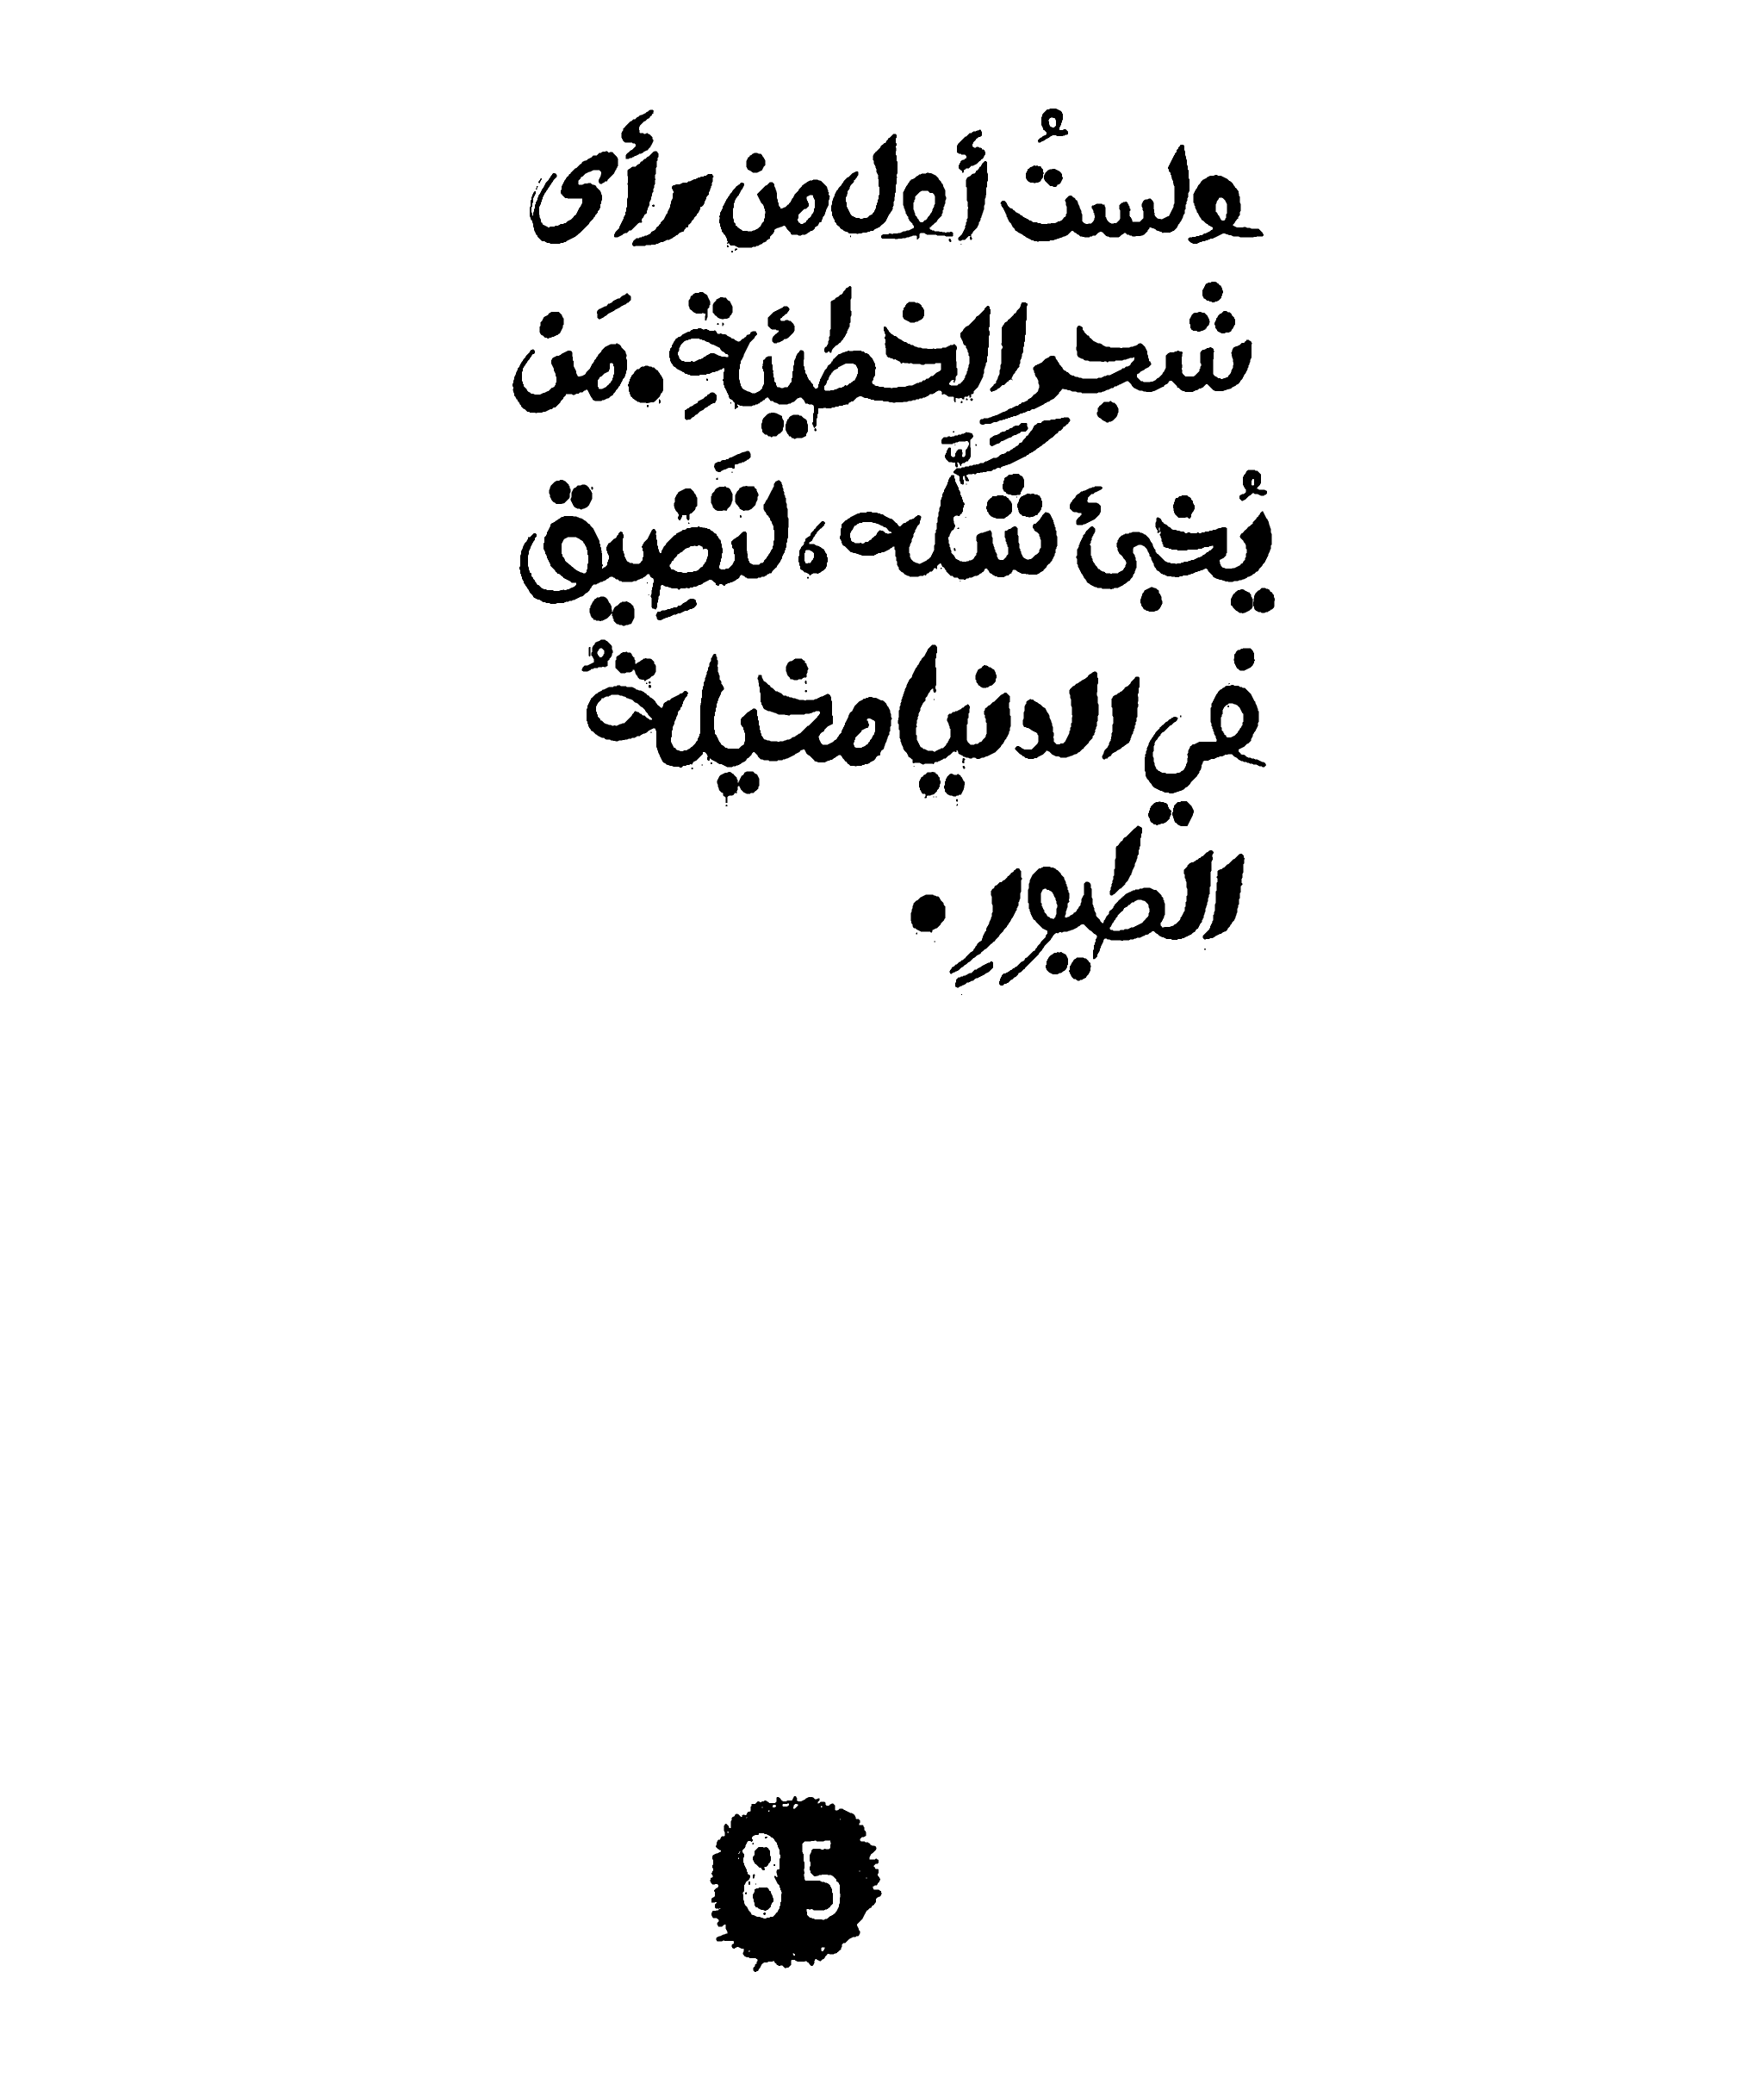 ولستُ أول من رأى
شجر الخطيئةِ. مَن
يُخبئ شكَّله، لتَضِيق
في الدنيا مخيلةُ
الطيورِ.
85